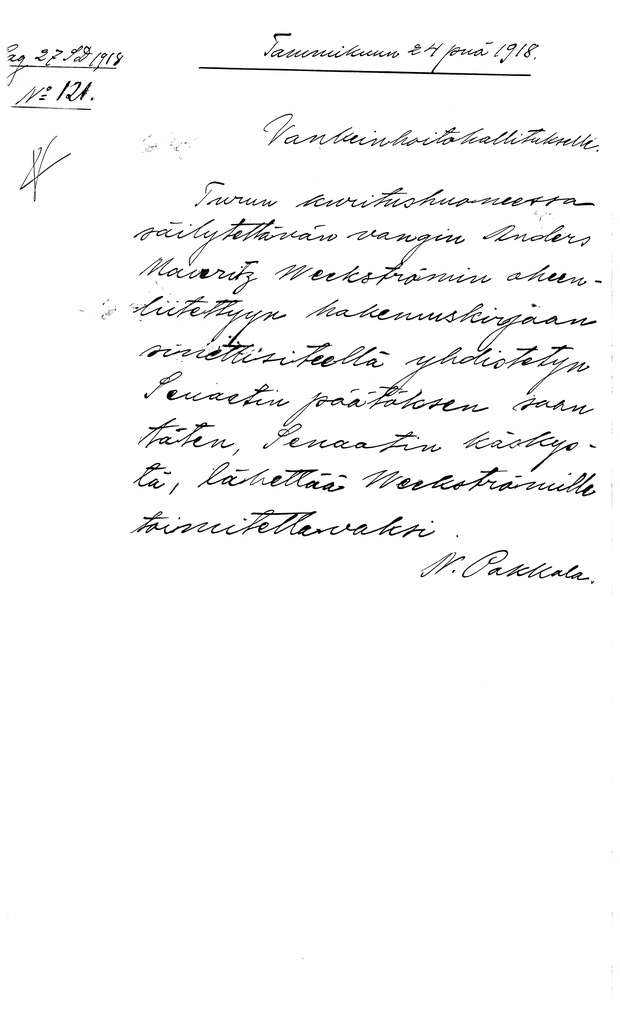 27 SD 1918
No 121.
Tammikuun 24 pnä 1918.
Vankeinhoitohallitukselle.
Turun kuritushuoneessa
säilytettävän vangin Anders
Mauritz Weckströmin oheen-
liitettyyn hakemuskirjaan
sinettisiteellä yhdistetyn
Senaatin päätöksen saan
täten, Senaatin käsky-
tä, lähettää Weckströmille
toimitettavaksi.
N. Pakkala.